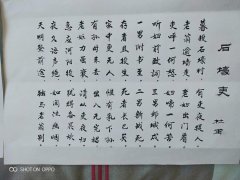 石壕吏 杜甫
暮投石壕村 有吏夜捉人
老翁逾墙走 老妇出门看
吏呼一何怒 妇啼一何苦
听妇前致词 三男邺城戍
一男附书至 二男新战死
存者且偷生 死者长已矣
室中更无人 惟有乳下孙
有孙母未去 出入无完裙
老妪力虽衰 请从吏夜归
急应河阳役 犹得备晨炊
夜久语声绝 如闻泣幽咽
天明登前途 独与老翁别
SHOT ON OPPO